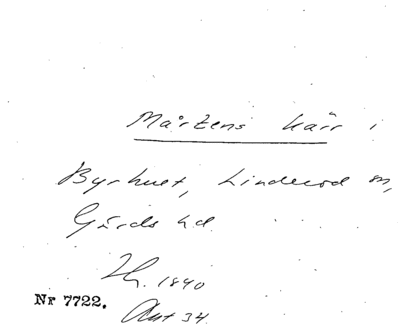 Mårtens kärr i
Byrhult, Linderöd sn,
Gärds hd.
1840
Nr 7722.
Akt 34